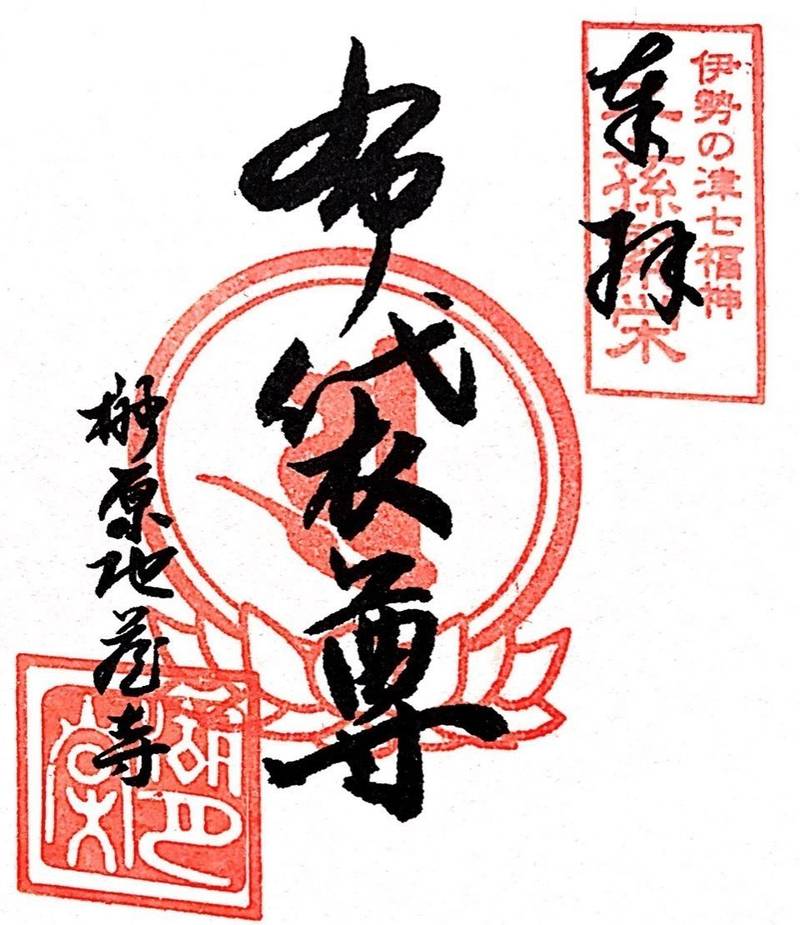 伊勢の津七福神
子孫繁栄
奉拝
布袋尊
榊原地蔵寺